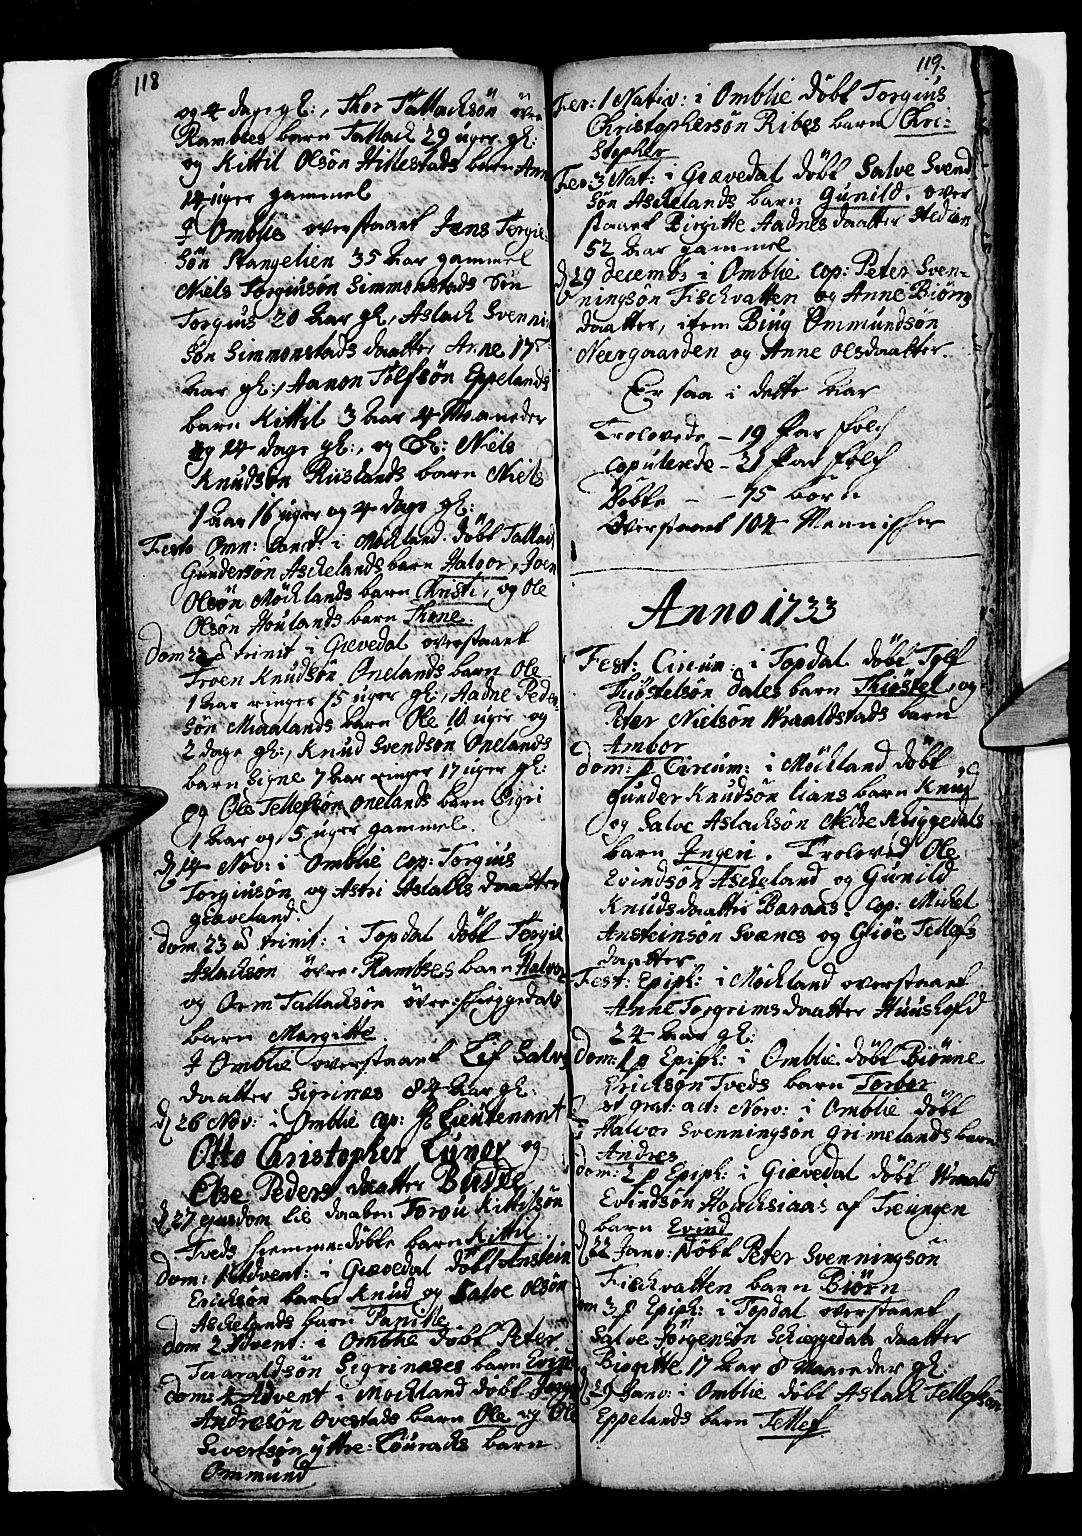 118
og 4 dage gl:, Thor Tallachsøn øvre
Rambses barn Tallach 29 uger gl:
og Kittil Olsøn Hillestads barn Anne
14 uger gammel
J Omblie overstaaet Jens Tergie-
søn Stangelien 35 aar gammel
Niels Torgiusøn Simmonstads søn
Torgius 20 aar gl, Aslach Svenni
søn Simmonstads daatter Anne 17
aar gl:, Aanon Tolfsøn Eppelands
barn Kittil 3 aar 4 Maaneder
og 14 dage gl:, og Niels
Knudsøn Riislands barn Niels
1 aar 16 uger og 4 dage gl:
Festo Omn: Sanct: i Møchland døbt Tallach
Gundersøn Aschelands barn Halvor, Joen
Olsøn Møchlands barn Christi, og Ole
Olsøn Houlands barn Thone.
Dom 22 à trinit i Giævedal overstaaet
Troen Knudsøn Onelands barn Ole
1 aar ringer 15 uger gl:, Aadne Peder
søn Miaalands barn Ole 10 uger og
2 dage gl:, Knud Svendsøn Onelands
barn Signe 7 aar ringer 17 uger gl:
og Ole Tellefsøn Onelands barn Sigri
1 aar og 5 uger gammel.
d 14 Nov: i Omblie cop: Torgius
Torgiusøn og Astri Aslachs daatter
græveland.
Dom 23 à trinit: i Topdal døbt Tergie
Aslachsøn øvre Rambses barn Halvor
og Orm Tallachsøn øvre: schieggedals
barn Margitte
J Omblie overstaaet Lif Salves
daatter Sigrines 84 aar gl:
d 26 Nov: i Omblie cop: Hr Lieutenant
Otto Christopher Luner og
Else Peders daatter Budde
d 27 ejusdem daaben Torou Kittilsøn
Tveds hiemme-døbte barn Kittil
Dom: 1 Advent: i Giævedal døbt Anstein
Erichsøn barn Knud og Salve Olsøn
Aschelands barn Panille
dom 2 Advent: i Omblie døbt Peter
Taaraldsøn Sigrinæses barn
dom: 4 Advent i Møchland døbt
Andresøn Ovestads barn Ole og Ole
Sivertsøn yttre: Lauraks barn
Ommund
119.
Fer: 1 Nativ: i Omblie døbt Torgius
Christophersøn Ribes barn Chri-
stopher
Fer: 3 Nat: i Giævedal døbt Salve Svend
søn Aschelands barn Gunild. over
staaet Birgitte Aadnes daatter Heden
52 aar gammel
d 29 decembr i Omblie cop: Peter Sven-
ningsøn Fischvatten og Anne Biørns
daatter, item Biug Ommundsøn
Neergaarden og Anne Olsdaatter.
Er saa i dette aar
Trolovede - 19 Par folch
copulerede - 21 Par folch
Døbte - - 75 børn
Overstaaet 104 Mennischer
Anno 1733
Fest: Circum: i Topdal døbt Tolf
Thiøstelsøn dales barn Thiøstel, og
Peter Nielsøn Wraaldstads barn
Ambor
dom: p Circum: i Møchland døbt
Gunder Knudsøn Lians barn Knud
og Salve Aslachsøn Nedre Kniggedals
barn Ingeri. Troloved Ole
Evindsøn Ascheland og Gunild
Knudsdaatter Baraas. cop: Michel
Ansteinsøn Svænes og Giøe Tellefs
daatter
Fest: Epiph: i Møchland overstaaet
Anne Torgrims daatter Huushold
24 aar gl:
dom: 1 p Epiph: i Omblie døbt Biønne
Erichsøn Tveds barn Torbor
st grat: act: Norv: i Omblie døbt
Halvor Svenningsøn Grimelands barn
Andres
dom: 2 p Epiph: i Giævedal døbt Wraald
Evindsøn af Treungen
barn Evind
d 22 Janv: døbt Peter Svenningsøn
Fischvatten barn Biørn
dom 3 p Epiph: i Topdal overstaaet
Salve Jørgensøn Schieggedals daatter
Birgitte 17 aar 8 Maaneder gl:
d 29 Janv: i Omblie døbt Aslach Tellefsøn
Eppelands barn Tellef.